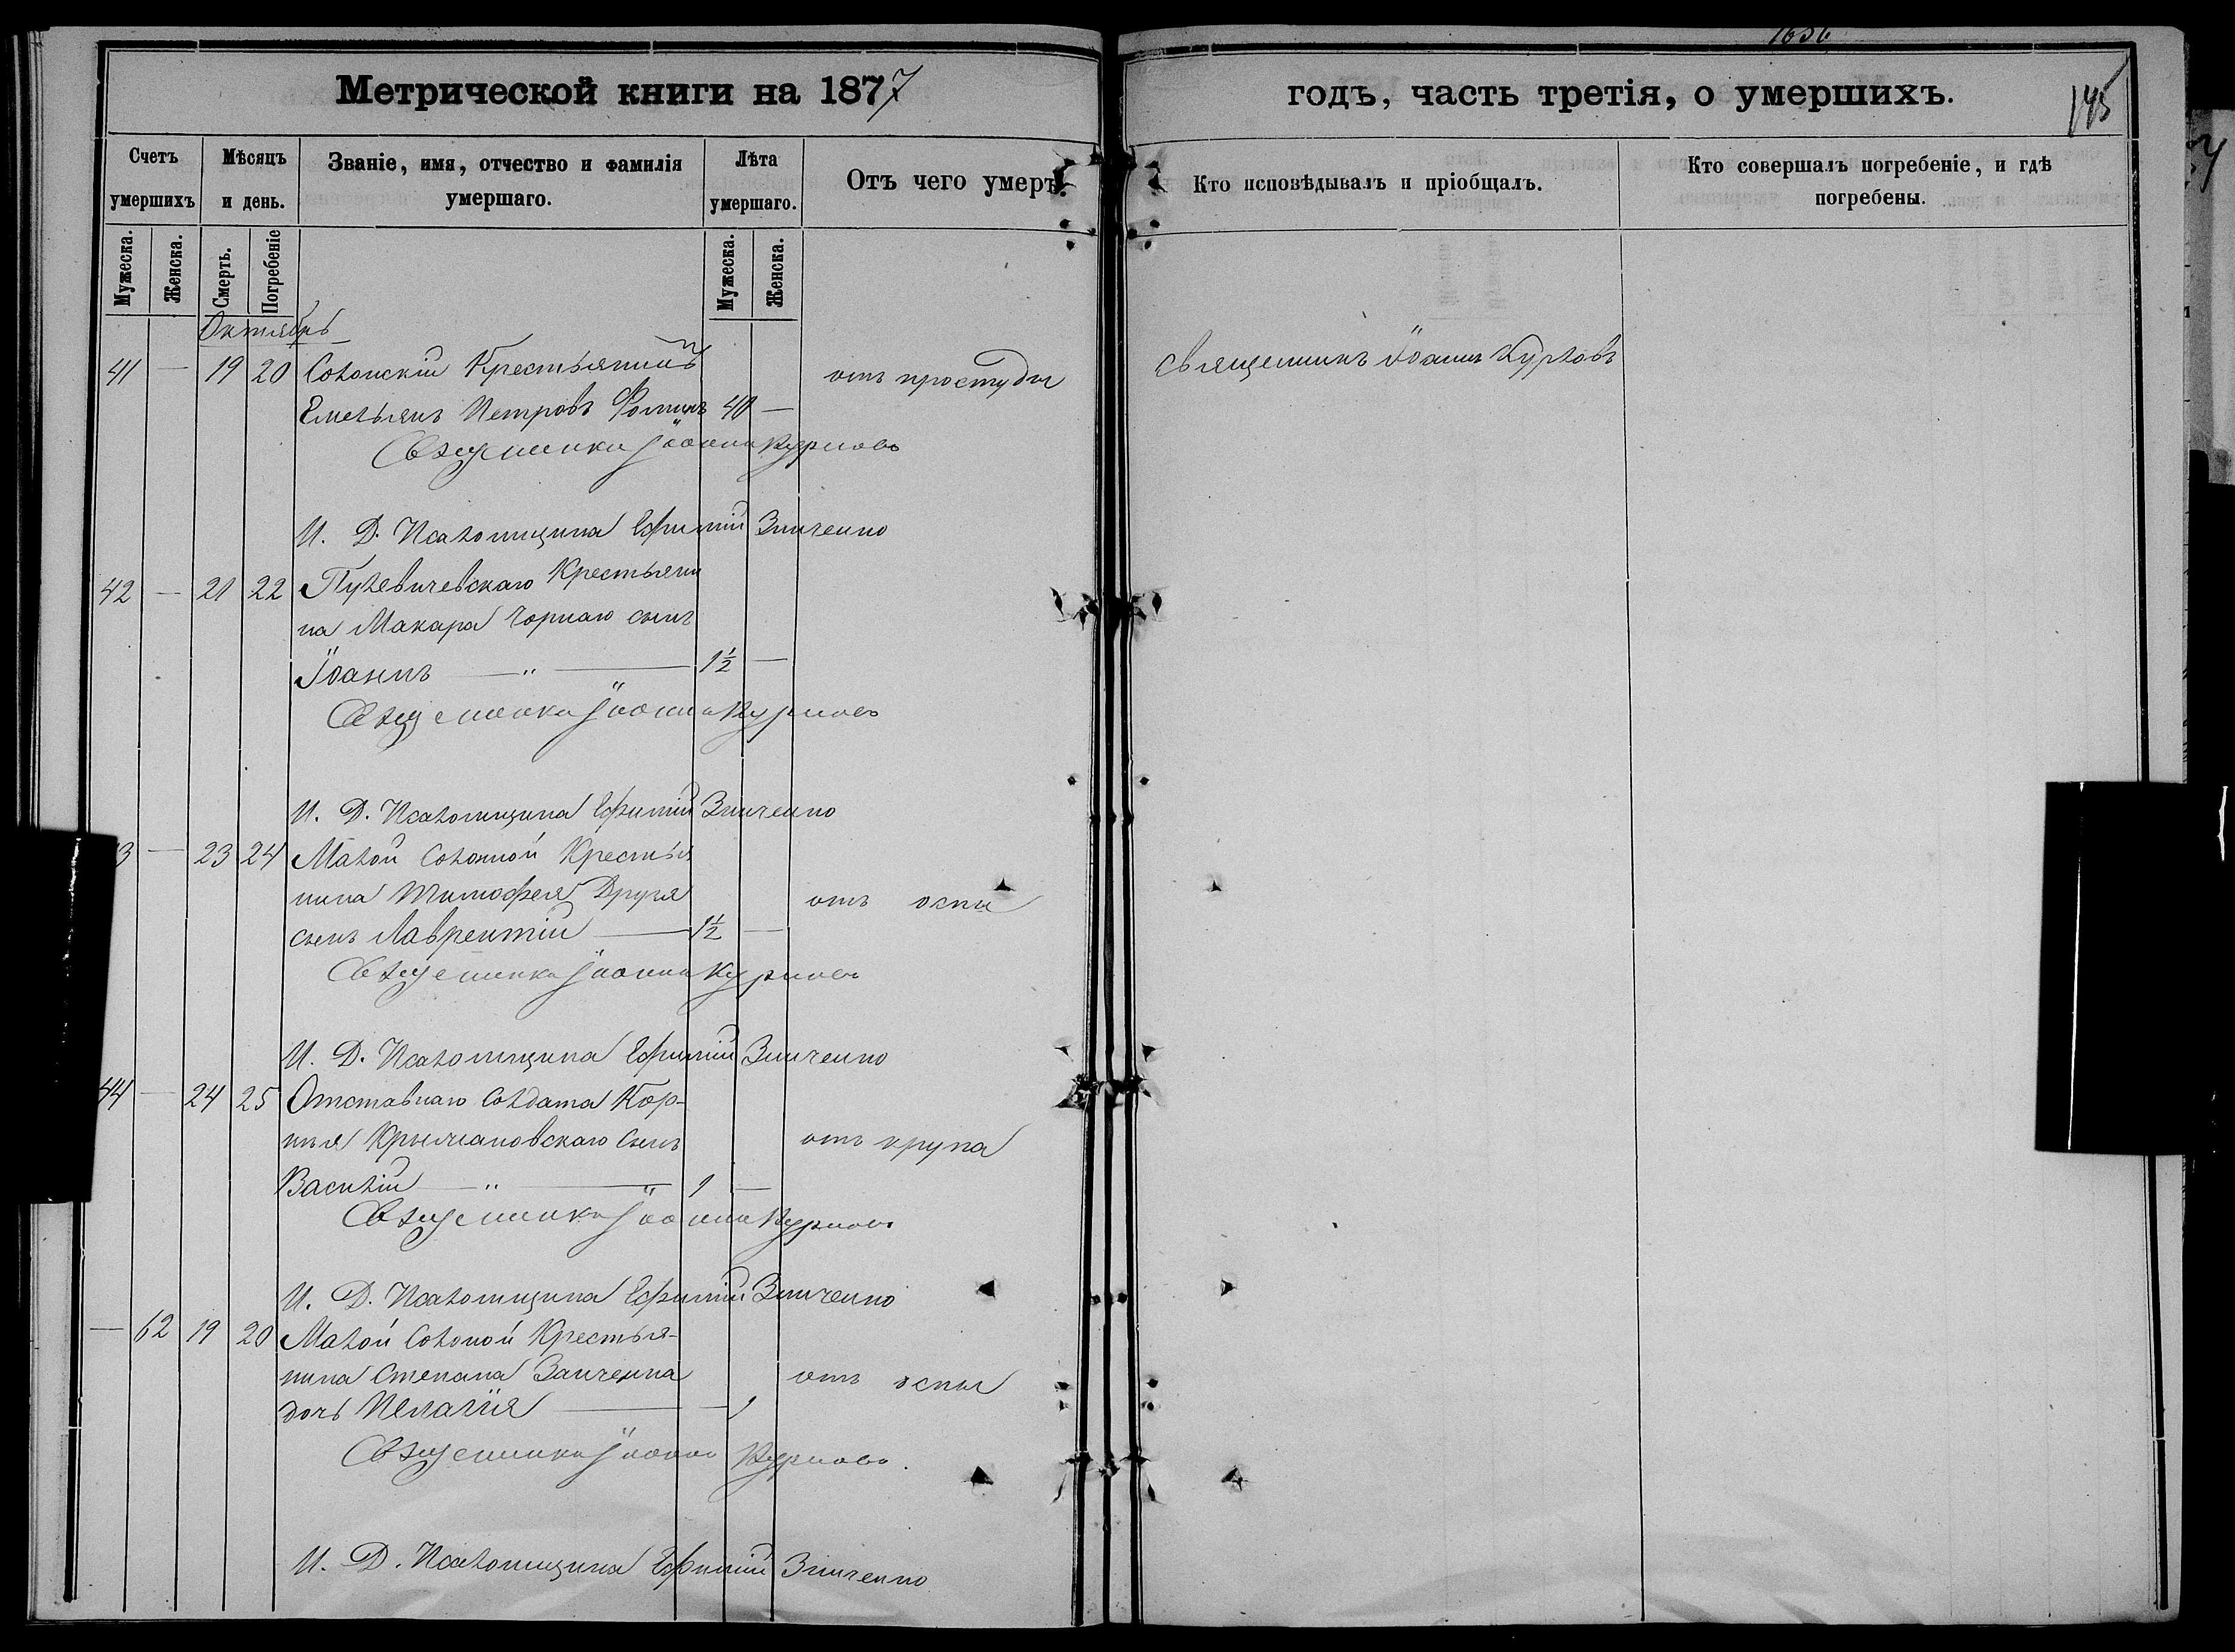 1636
Метрической книги на 1877
годъ, часть третія, о умершихъ.
145
Счетъ умершихъ
Мѣсяцъ и день.
Званіе, имя, отчество и фамилія умершаго.
Лѣта умершаго.
Отъ чего умеръ.
Кто исповѣдывалъ и пріобщалъ.
Кто совершалъ погребеніе, и гдѣ погребены.
Мужеска.
Женска.
Смерть.
Погребеніе
Мужеска.
Женска.
Октябрь
41 — 19 20 Солонскій Крестьянинъ отъ простуды Священникъ Іоаннъ Курловъ
Емельянъ Петровъ Фоминъ 40 —
Священникъ Іоаннъ Курловъ
И. Д. Псаломщика Ефимій Зинченко
42 — 21 22 Пулевичевскаго Крестьяни
на Макара Чорнаго сынъ
Іоаннъ — " — 1½ —
Священникъ Іоаннъ Курловъ
И. Д. Псаломщика Ефимій Зинченко
3 — 23 24 Малой Солоной Крестья
нина Тимофея Друя отъ оспы
сынъ Лаврентій — 1½ —
Священникъ Іоаннъ Курловъ
И. Д. Псаломщика Ефимій Зинченко
44 — 24 25 Отставнаго Солдата Кор-
нья Крыжановскаго сынъ отъ крупа
Василій — " — " 1 —
Священникъ Іоаннъ Курловъ
И. Д. Псаломщика Ефимій Зинченко
— 62 19 20 Малой Солоной Крестья-
нина Степана Заиченка отъ оспы
дочь Пелагія — — 1
Священникъ Іоаннъ Курловъ.
И. Д. Псаломщика Ефимій Зинченко